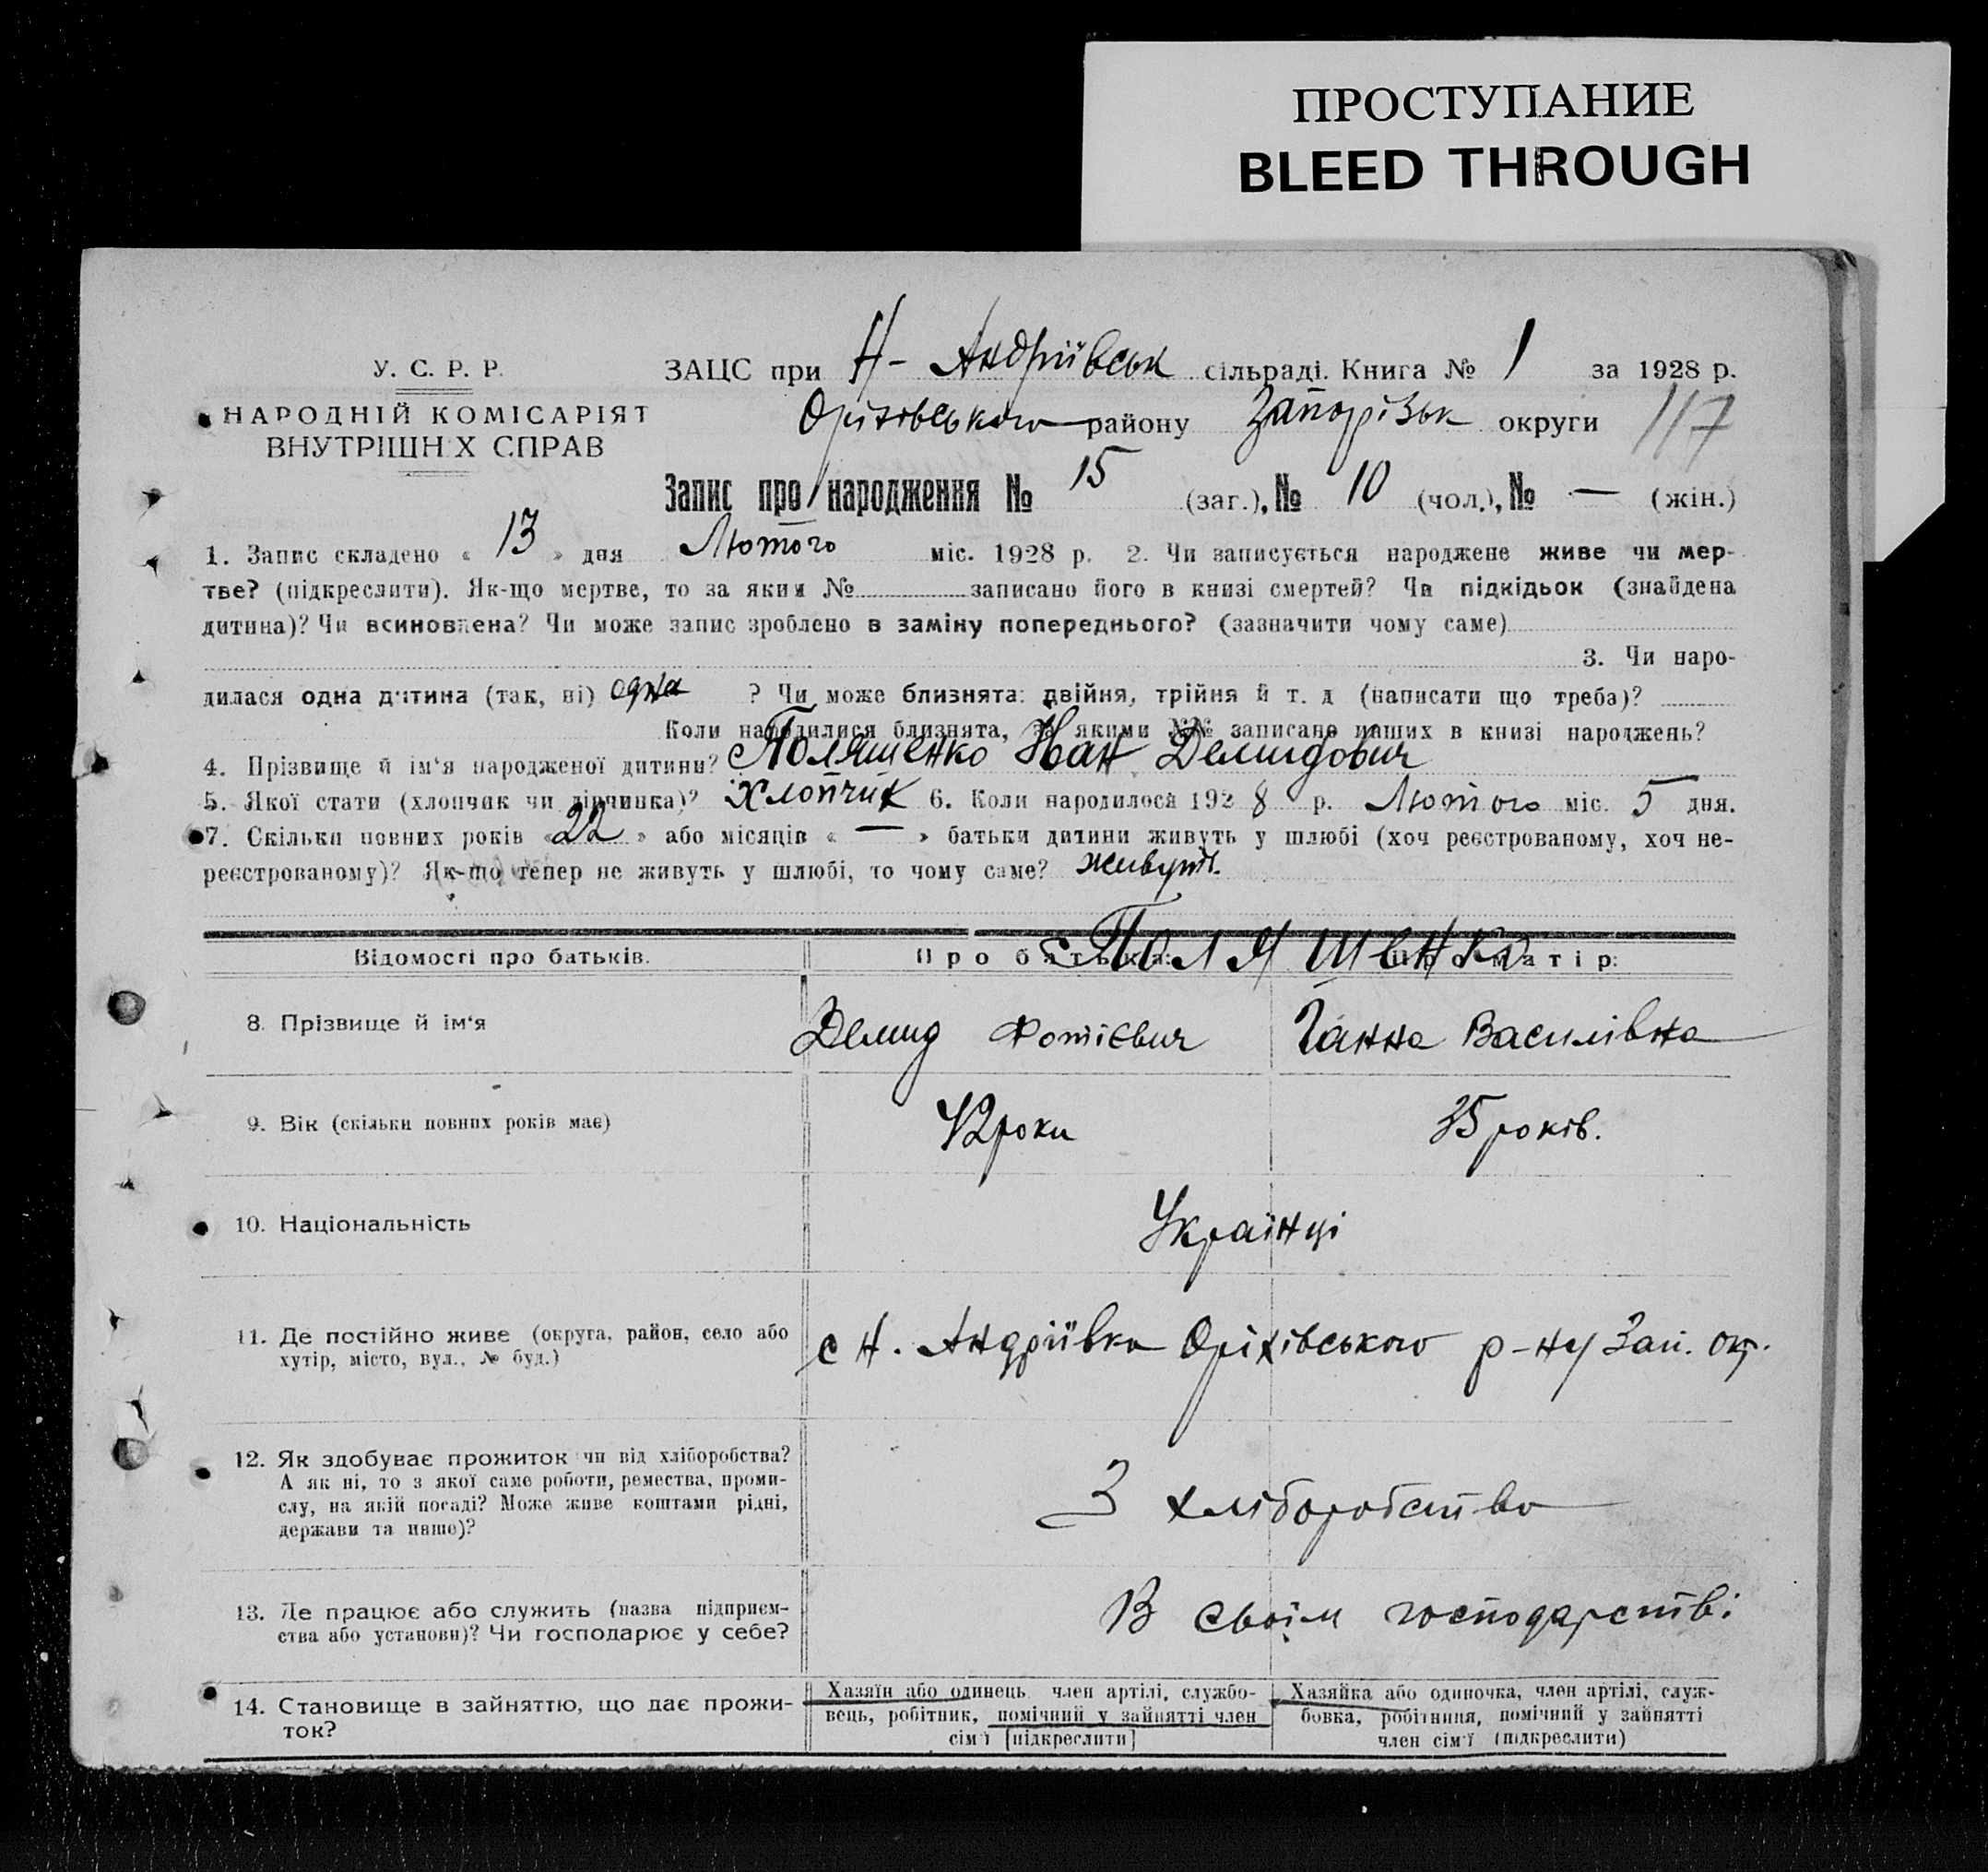 ПРОСТУПАНИЕ
BLEED THROUGH
У. С. Р. Р.
НАРОДНІЙ КОМІСАРІЯТ
ВНУТРІШН Х СПРАВ
ЗАЦС при Н- Андріївськ сільраді. Книга № 1 за 1928 р.
Оріхівського району Запорізьк округи 117
Запис про народження № 15 (заг.), № 10 (чол.), № — (жін.)
1. Запис складено « 13 » дня Лютого міс. 1928 р. 2. Чи записується народжене живе чи мер-
тве? (підкреслити). Як-що мертве, то за яким № записано його в книзі смертей? Чи підкідьок (знайдена
дитина)? Чи всиновлена? Чи може запис зроблено в заміну попереднього? (зазначити чому саме)
3. Чи наро-
дилася одна дитина (так, ні) одна ? Чи може близнята: двійня, трійня й т. д (написати що треба)?
Коли народилися близнята, за якими №№ записано инших в книзі народжень?
4. Прізвище й ім'я народженої дитини? Поляшенко Іван Демидович
5. Якої стати (хлопчик чи дівчинка)? Хлопчик 6. Коли народилося 192 8 р. Лютого міс. 5 дня.
7. Скільки повних років « 22 » або місяців « — » батьки дитини живуть у шлюбі (хоч реєстрованому, хоч не-
реєстрованому)? Як-що тепер не живуть у шлюбі, то чому саме? живуть.
Відомості про батьків. Про батька: Про матір:
Поляшенко
8. Прізвище й ім'я Демид Фотієвич Ганна Василівна
9. Вік (скільки повних років має) 42 роки 35 років.
10. Національність Українці
11. Де постійно живе (округа, район, село або
хутір, місто, вул., № буд.) с Н. Андріївка Оріхівського р-ну Зап. окр.
12. Як здобуває прожиток чи від хліборобства?
А як ні, то з якої саме роботи, ремества, проми-
слу, на якій посаді? Може живе коштами рідні,
держави та инше)?
З хліборобства
13. Де працює або служить (назва підприєм-
ства або установи)? Чи господарює у себе?
В своїм господарстві
14. Становище в зайняттю, що дає прожи-
ток?
Хазяїн або одинець член артілі, службо-
вець, робітник, помічний у зайнятті член
сім'ї [підкреслити]
Хазяйка або одиночка, член артілі, служ-
бовка, робітниця, помічний у зайнятті
член сім'ї (підкреслити)